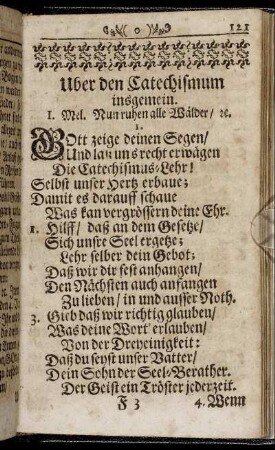 o 121
Uber den Catechismum
insgemein.
I. Mel. Nun ruhen alle Wälder/ ꝛc.
1.
GOtt zeige deinen Segen/
Und laß uns recht erwägen
Die Catechismus-Lehr!
Selbst unser Hertz erbaue;
Damit es darauff schaue
Was kan vergrössern deine Ehr.
2. Hilff/ daß an dem Gesetze/
Sich unsre Seel ergetze;
Lehr selber dein Gebot:
Daß wir dir fest anhangen/
Den Nächsten auch anfangen
Zu lieben/ in und ausser Noth.
3. Gieb daß wir richtig glauben/
Was deine Wort erlauben/
Von der Dreyeinigkeit:
Daß du seyst unser Vatter/
Dein Sohn der Seel-Berather.
Der Geist ein Tröster jederzeit.
F 3 4. Wenn